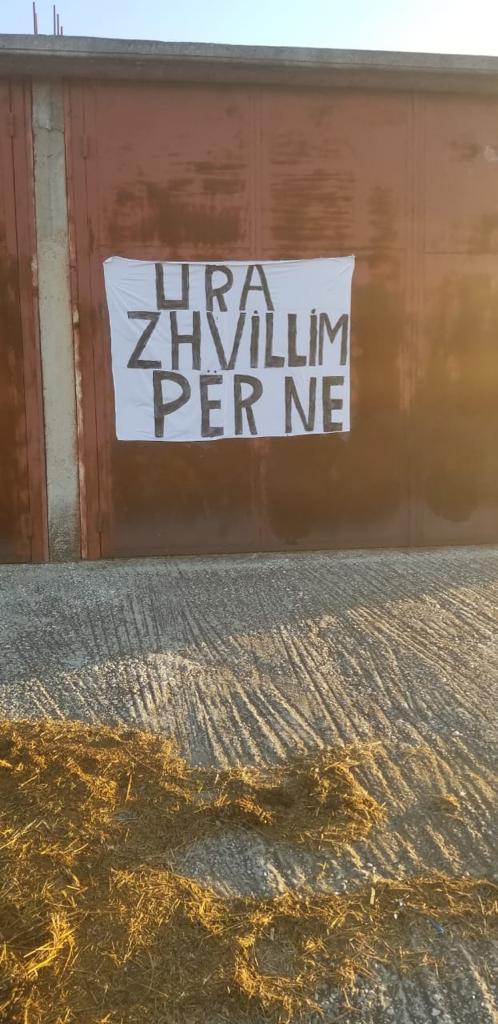 URA
ZHVILLIM
PËR NE